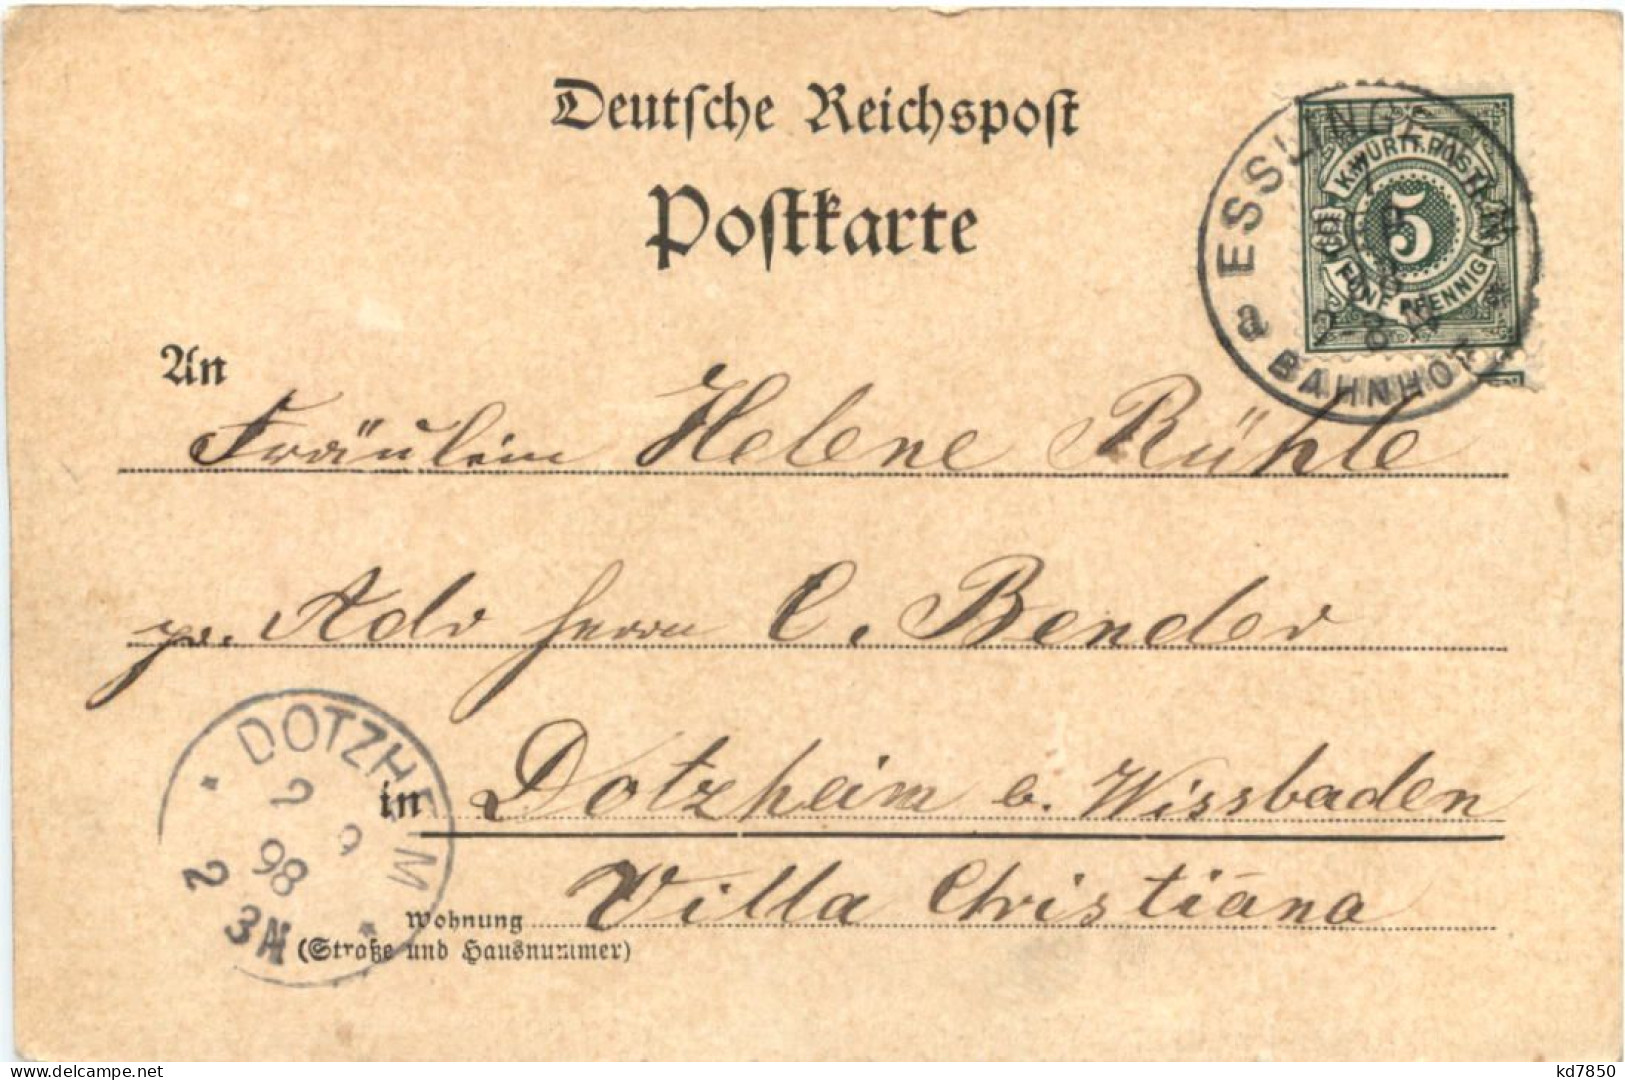 Deutsche Reichspost
Postkarte
K.WÜRTT.POST
5
FÜNF PFENNIG
ESSLINGEN
a BAHNHOF
An
Fräulein Helene Rühle
pr. Adr Herrn C. Bender
DOTZHEIM
2 9
98
2 3N
in Dotzheim b. Wissbaden
Villa Christiana
Wohnung
(Straße und Hausnummer)
kd7850